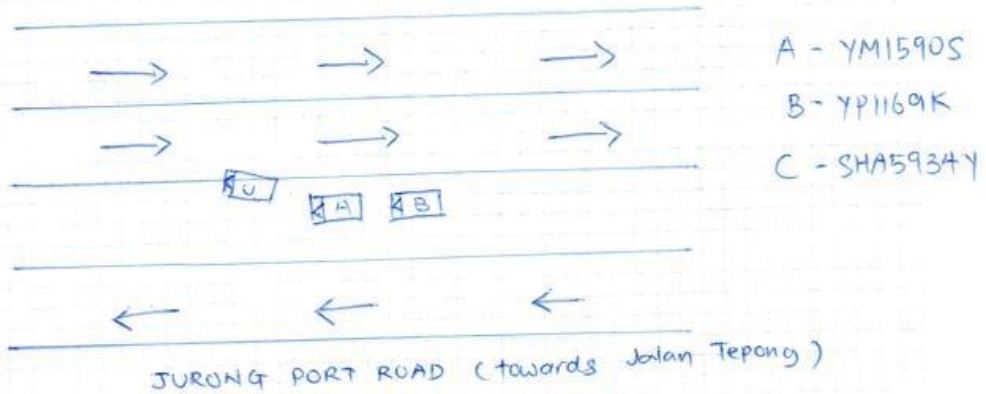 A - YM1590S
B - YP1169K
C - SHA5934Y
A
B
JURONG PORT ROAD (towards Jalan Tepong)